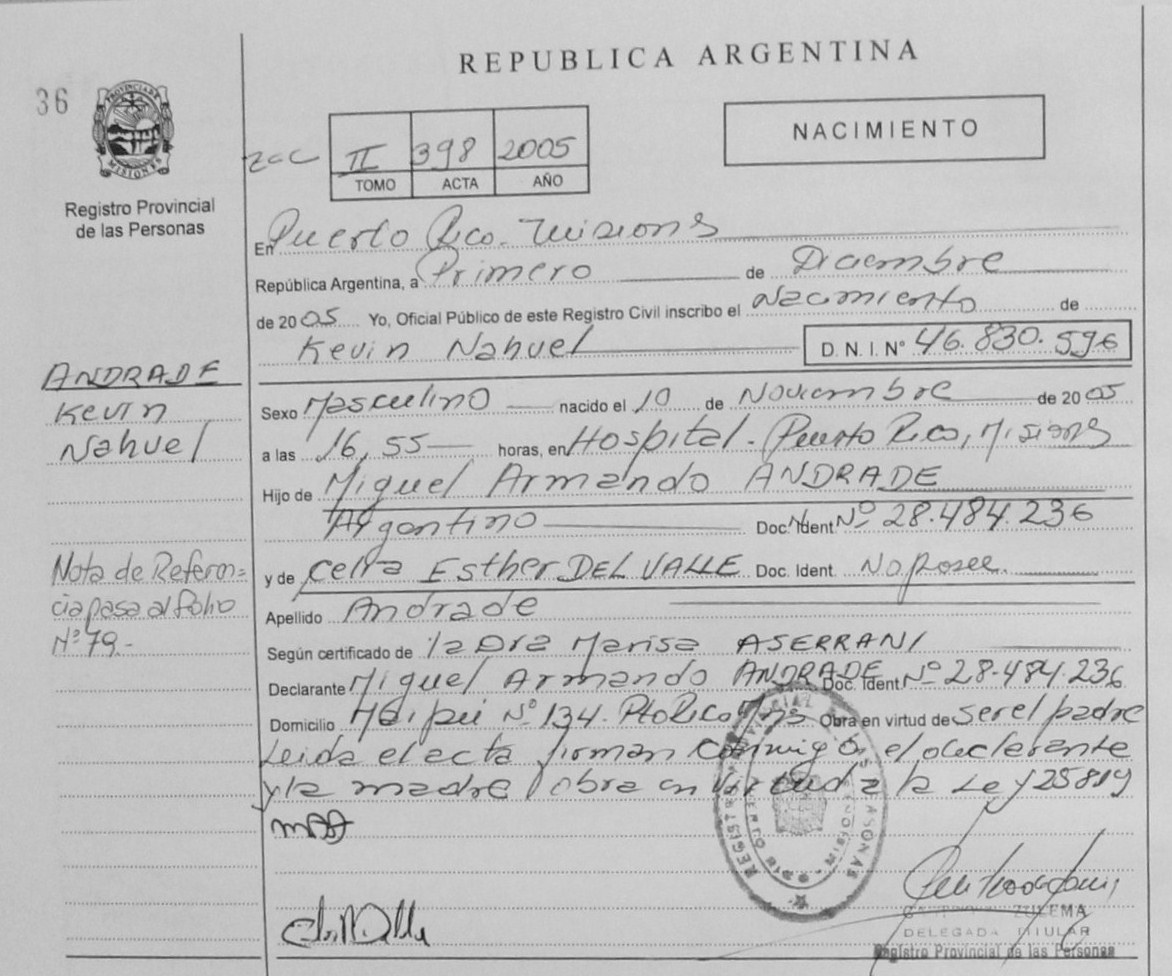 REPUBLICA ARGENTINA
36
PROVINCIA DE MISIONES
Registro Provincial
de las Personas
II 398 2005
TOMO ACTA AÑO
NACIMIENTO
En Puerto Rico. Misions
República Argentina, a Primero de Diciembre
de 2005 Yo, Oficial Público de este Registro Civil inscribo el Nacimiento de
Kevin Nahuel D. N. I. N° 46.830.596
ANDRADE
Kevin
Nahuel
Sexo Masculino nacido el 10 de Noviembre de 2005
a las 16,55 horas, en Hospital. Puerto Rico, Misions
Hijo de Miguel Armando ANDRADE
Argentino Doc. Ident. Nº 28.484.236
y de Celia Esther DEL VALLE Doc. Ident. No posee.
Apellido Andrade
Nota de Referen=
cia pasa al folio
Nº 79.-
Según certificado de la Dra Marisa ASERRANI
Declarante Miguel Armando ANDRADE Doc. Ident. Nº 28.484.236
Domicilio Maipú Nº 134. Pto Rico Mns Obra en virtud de ser el padre
Leida el acta firman conmigo el declarante
y la madre obra en virtud a la Ley 25819
ZULEMA
DELEGADA TITULAR
Registro Provincial de las Personas